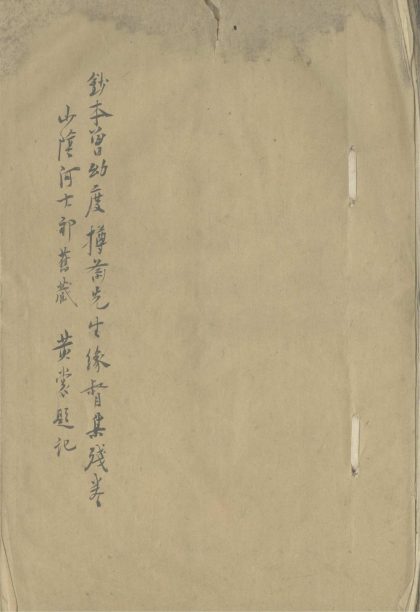 鈔本曾幼度撙齋先生緣督集殘卷
山陰何士祁舊藏　黃裳題記